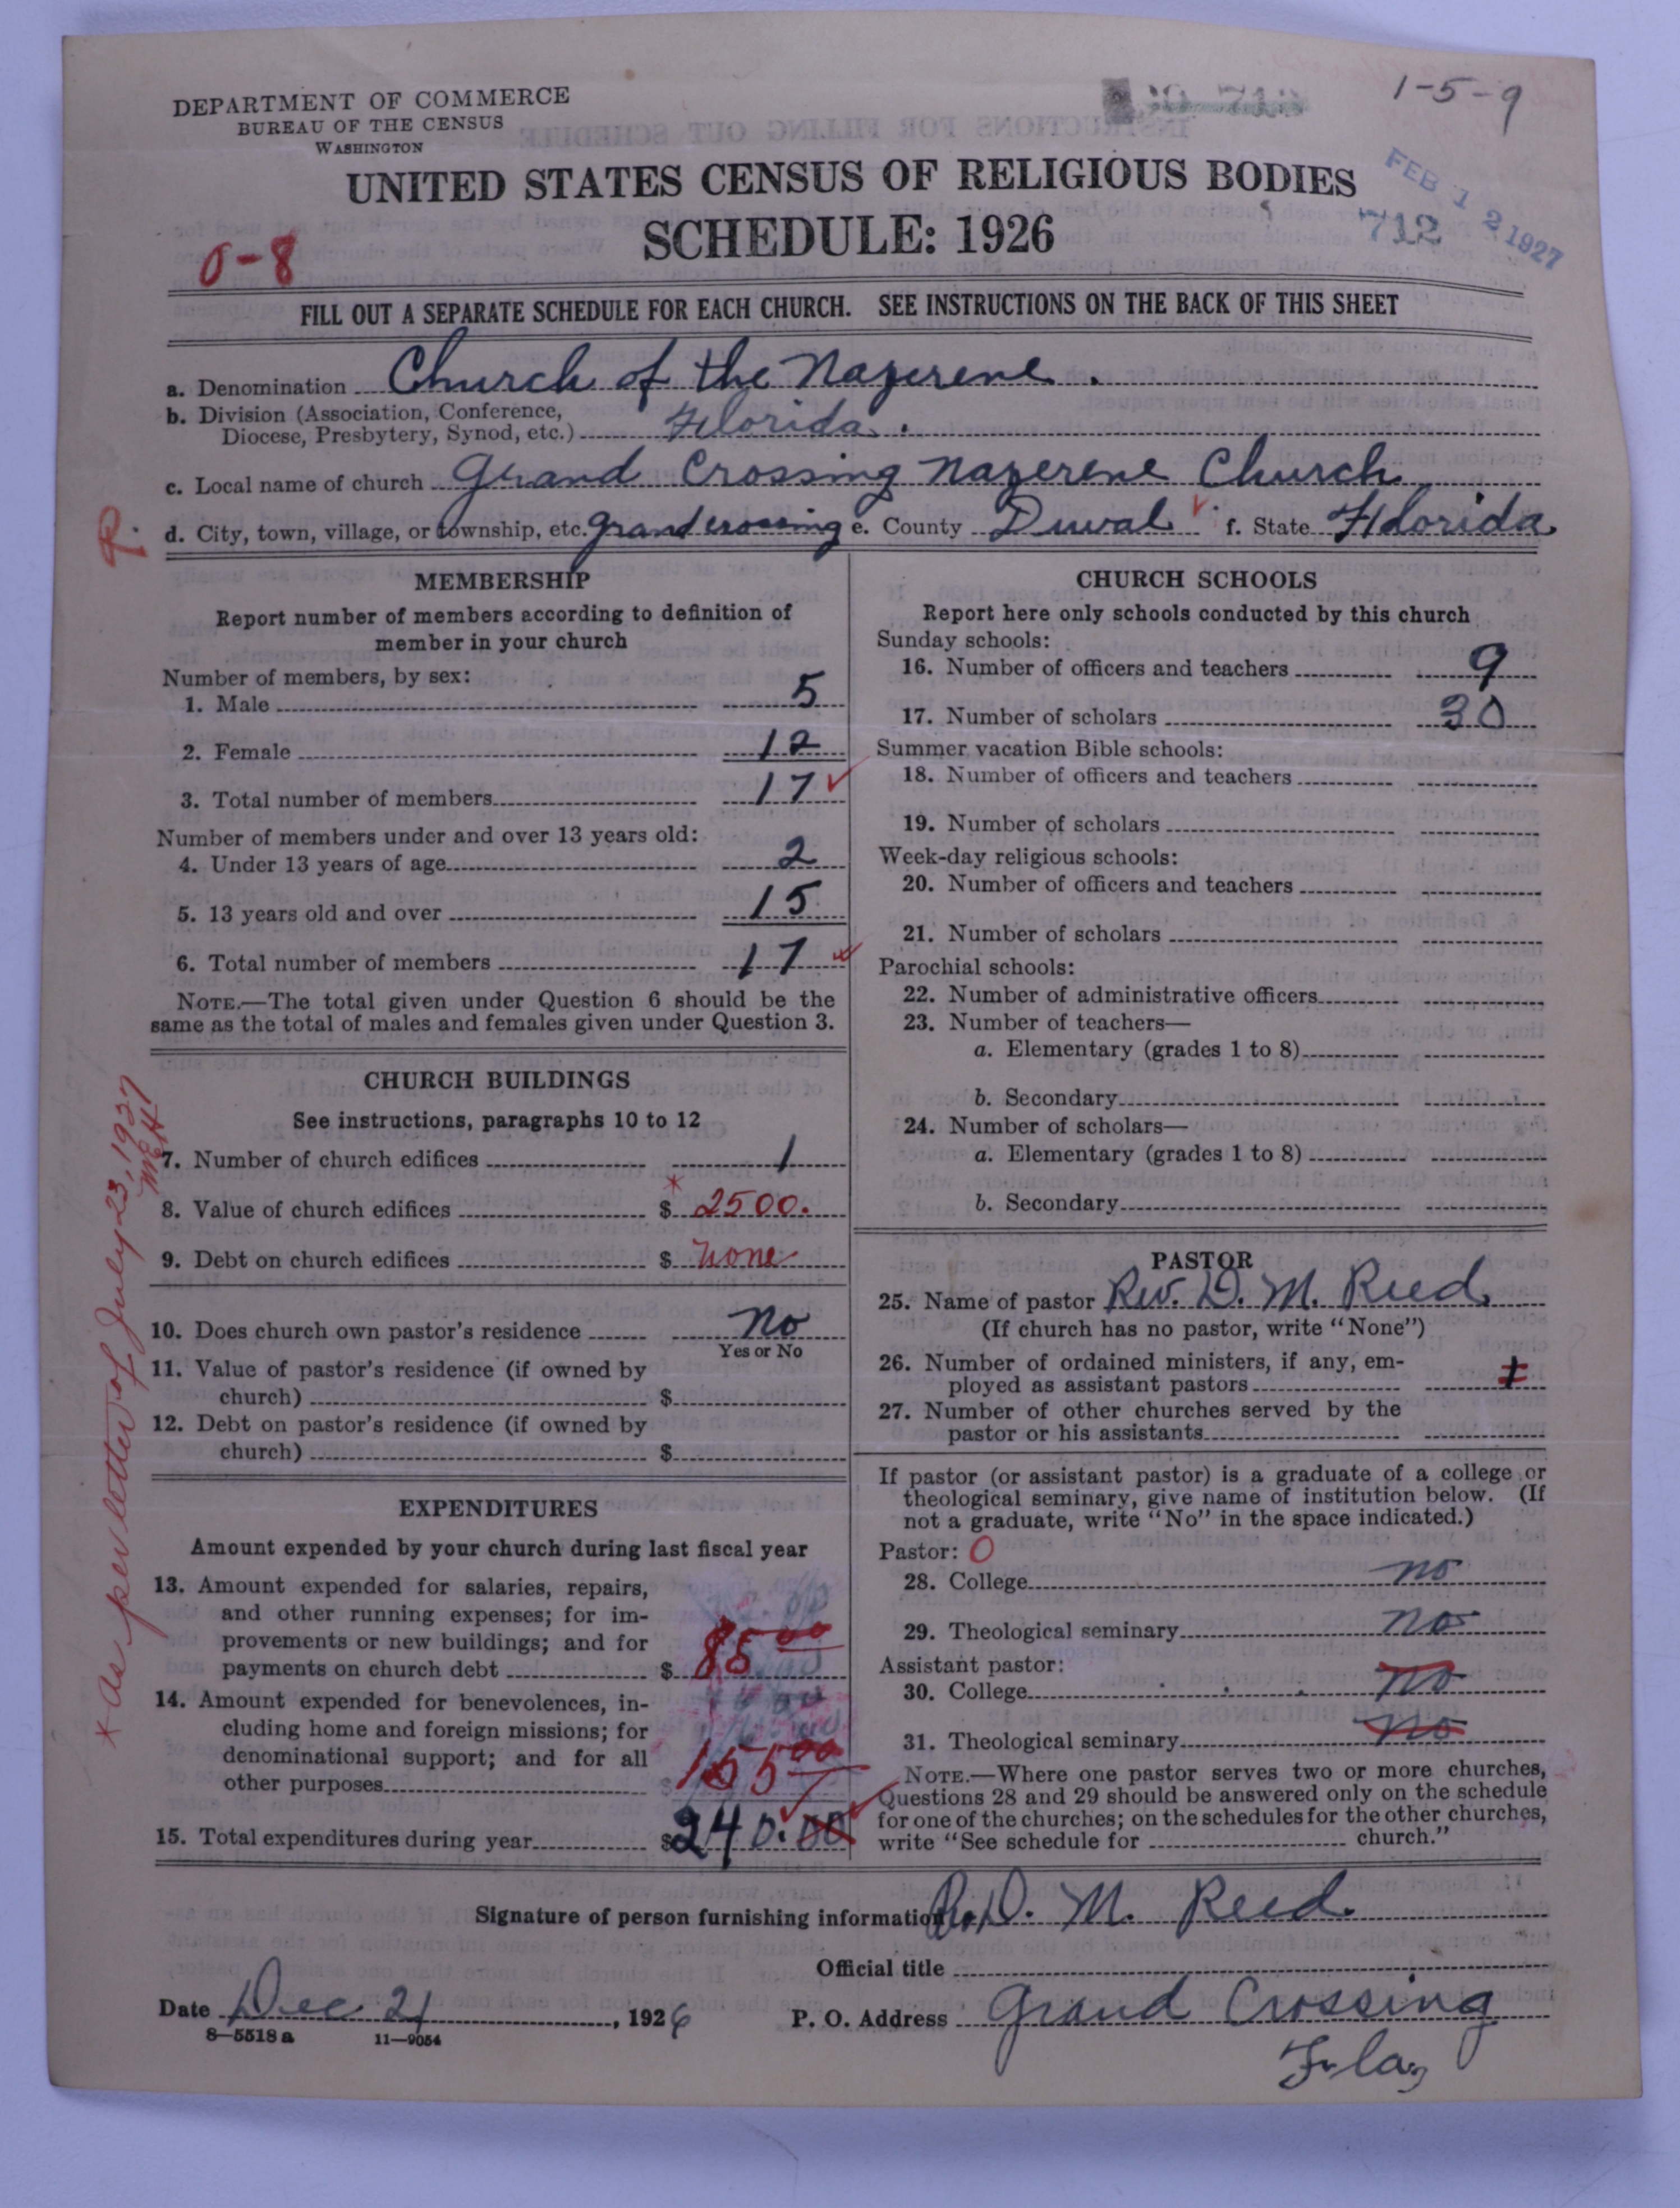 DEPARTMENT OF COMMERCE
BUREAU OF THE CENSUS
WASHINGTON
1-5-9
UNITED STATES CENSUS OF RELIGIOUS BODIES
SCHEDULE: 1926
FEB 12 1927
712
0-8
FILL OUT A SEPARATE SCHEDULE FOR EACH CHURCH. SEE INSTRUCTIONS ON THE BACK OF THIS SHEET
a. Denomination Church of the Nazerene.
b. Division (Association, Conference,
Diocese, Presbytery, Synod, etc.) Florida.
c. Local name of church Grand Crossing Nazerene Church
R.
d. City, town, village, or township, etc. Grand crossing e. County Duval f. State Florida
MEMBERSHIP
Report number of members according to definition of
member in your church
Number of members, by sex:
1. Male 5
2. Female 12
3. Total number of members 17
Number of members under and over 13 years old:
4. Under 13 years of age 2
5. 13 years old and over 15
6. Total number of members 17
NOTE.—The total given under Question 6 should be the
same as the total of males and females given under Question 3.
CHURCH BUILDINGS
See instructions, paragraphs 10 to 12
7. Number of church edifices 1
8. Value of church edifices $ * 2500.
9. Debt on church edifices $ none
10. Does church own pastor's residence no
Yes or No
11. Value of pastor's residence (if owned by
church) $
12. Debt on pastor's residence (if owned by
church) $
* As per letter of July 23, 1927
MEH
EXPENDITURES
Amount expended by your church during last fiscal year
13. Amount expended for salaries, repairs,
and other running expenses; for im-
provements or new buildings; and for
payments on church debt $ 85 00
14. Amount expended for benevolences, in-
cluding home and foreign missions; for
denominational support; and for all
other purposes $ 155 00
15. Total expenditures during year $ 240.00
CHURCH SCHOOLS
Report here only schools conducted by this church
Sunday schools:
16. Number of officers and teachers 9
17. Number of scholars 30
Summer vacation Bible schools:
18. Number of officers and teachers
19. Number of scholars
Week-day religious schools:
20. Number of officers and teachers
21. Number of scholars
Parochial schools:
22. Number of administrative officers
23. Number of teachers—
a. Elementary (grades 1 to 8)
b. Secondary
24. Number of scholars—
a. Elementary (grades 1 to 8)
b. Secondary
PASTOR
25. Name of pastor Rev. D. M. Reed
(If church has no pastor, write "None")
26. Number of ordained ministers, if any, em-
ployed as assistant pastors 1
27. Number of other churches served by the
pastor or his assistants
If pastor (or assistant pastor) is a graduate of a college or
theological seminary, give name of institution below. (If
not a graduate, write "No" in the space indicated.)
Pastor: 0
28. College no
29. Theological seminary no
Assistant pastor:
30. College no
31. Theological seminary no
NOTE.—Where one pastor serves two or more churches,
Questions 28 and 29 should be answered only on the schedule
for one of the churches; on the schedules for the other churches,
write "See schedule for church."
Signature of person furnishing information Rev D. M. Reed
Official title
Date Dec 21, 1926 P. O. Address Grand Crossing
Fla,
8—5518 a 11—9054